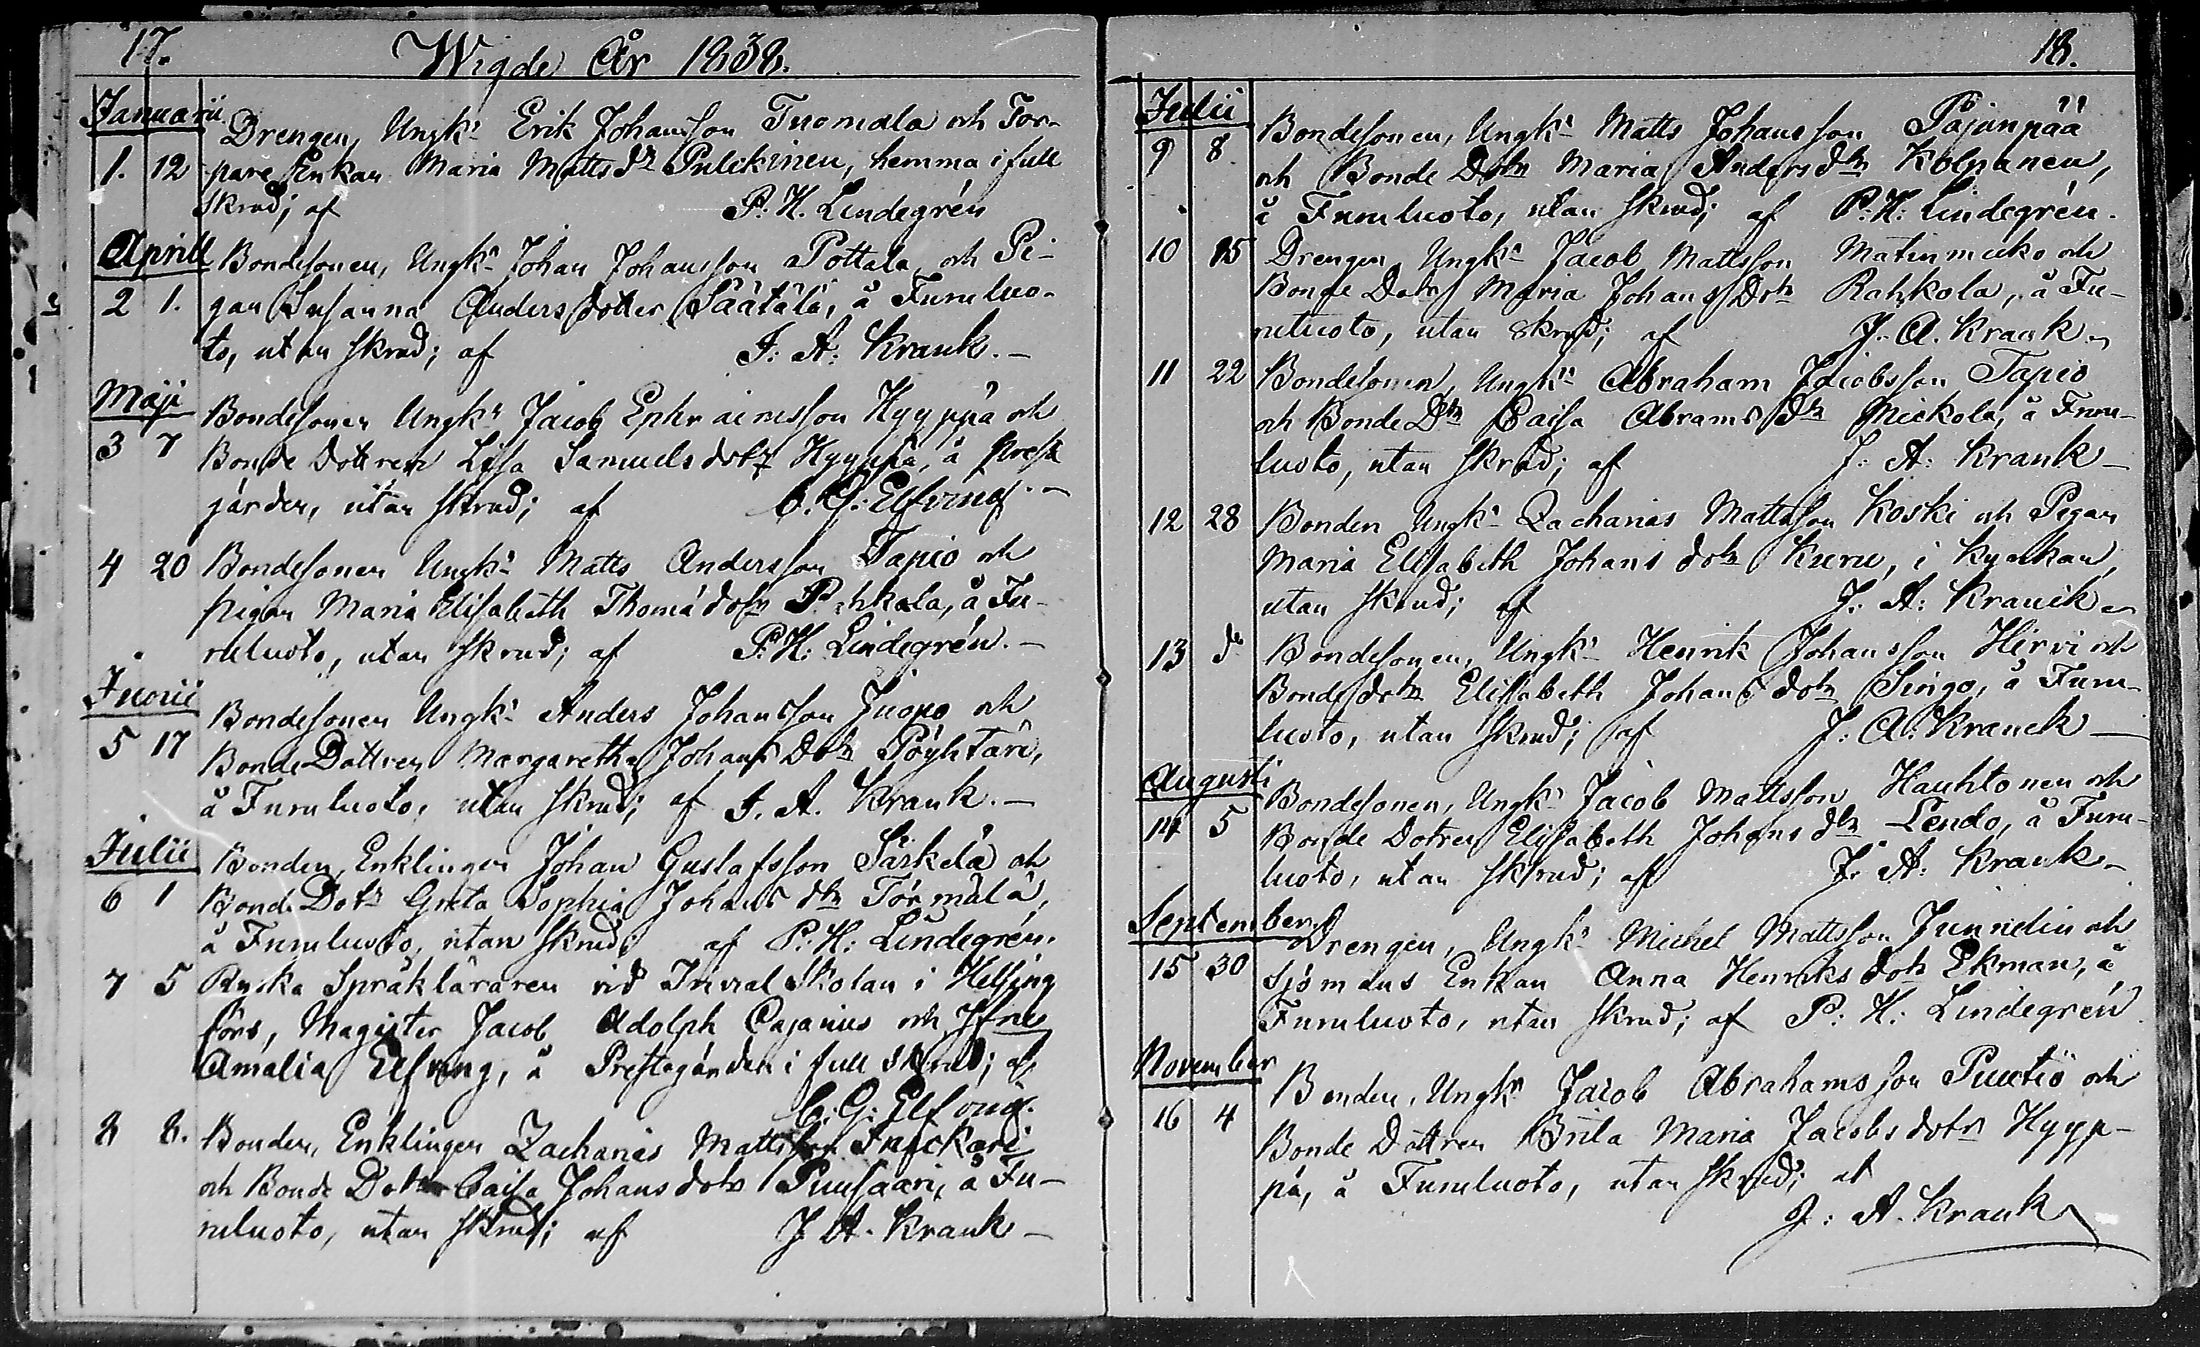 17.
Wigde År 1838.
Januarii
Drengen, Ungk: Erik Johansson Tuomala och Tor-
1. 12 pare Enkan Maria Matts dr Pulckinen, hemma i full
skrud; af P. H. Lindegrén
Aprill
Bondesonen, Ungk: Johan Johansson Pottala och Pi-
2 1. gan Susanna Andersdotter Säätälä, å Furuluo-
to, utan skrud; af J. A. Krank.-
Maji
Bondesonen Ungk: Jacob Ephraimsson Hyyppä och
3 7 Bonde dottren Lisa Samuels dotr Hyyppä, å Prest
gården, utan skrud; af C. G. Elfving.-
4 20 Bondesonen Ungk: Matts Andersson Tapio och
pigan Maria Elisabeth Thomæ dotr Pahkala, å Fu-
ruluoto, utan skrud; af P. H. Lindegrén.-
Junii
Bondesonen Ungk: Anders Johansson Juopo och
5 17 Bonde Dottren Margaretha Johans Dotr Pöyhtäri,
å Furuluoto, utan skrud; af J. A. Krank.-
Julii
Bonden, Enklingen Johan Gustafsson Särkelä och
6 1 Bonde Dotr Greta Sophia Johans dtr Törmälä,
å Furuluoto, utan skrud; af P. H. Lindegrén.
7 5 Ryska Språkläraren vid Trivial Skolan i Helsing
fors, Magister Jacob Adolph Cajanus och Jfru
Amalia Elfving, å Prestegården i full skrud; af
C. G. Elfving.
8 8. Bonden, Enklingen Zacharias Mattsson Jusckari
och Bonde Dotr Caisa Johans dotr Puusaari, å Fu-
ruluoto, utan skrud; af J. A. Krank-
18.
Julii
Bondesonen, Ungk: Matts Johansson Pajunpää
9 8 och Bonde Dotr Maria Anders dtr Kolpanen,
å Furuluoto, utan skrud; af P. H. Lindegrén.
10 15 Drengen Ungk: Jacob Mattsson Matinmikko och
Bonde Dotr Maria Johans Dotr Rahkola, å Fu-
ruluoto, utan skrud; af J. A. Krank-
11 22 Bondesonen, Ungk: Abraham Jacobsson Tapio
och Bonde Dtr Caisa Abrams dtr Mickola, å Furu-
luoto, utan skrud; af J. A. Krank-
12 28 Bonden Ungk: Zacharias Mattsson Koski och Pigan
Maria Elisabeth Johans dotr Kuru, i Kyrkan,
utan skrud; af J. A. Kranck-
13 do Bondesonen, Ungk: Henrik Johansson Hirvi och
Bonde dotr Elisabeth Johans dotr Singo, å Furu-
luoto, utan skrud; af J. A. Kranck-
Augusti
Bondesonen, Ungk: Jacob Mattsson Hauhtonen och
14 5 Bonde Dotren Elisabeth Johans dtr Lendo, å Furu-
luoto, utan skrud; af J. A. Krank-
September
Drengen, Ungk: Michel Mattsson Junnelin och
15 30 Sjömans Enkan Anna Henriks dotr Ekman, å
Furuluoto, utan skrud; af P. H. Lindegrén
November
Bonden, Ungk: Jacob Abrahamsson Puutiö och
16 4 Bonde Dottren Brita Maria Jacobs dotr Hyyp-
pä, å Furuluoto, utan skrud; af
J. A. Krank